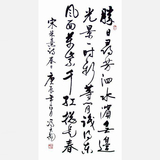 勝日尋芳泗水濱無邊
光景一時新等閒識得東
風面萬紫千紅總是春
宋朱熹詩春日